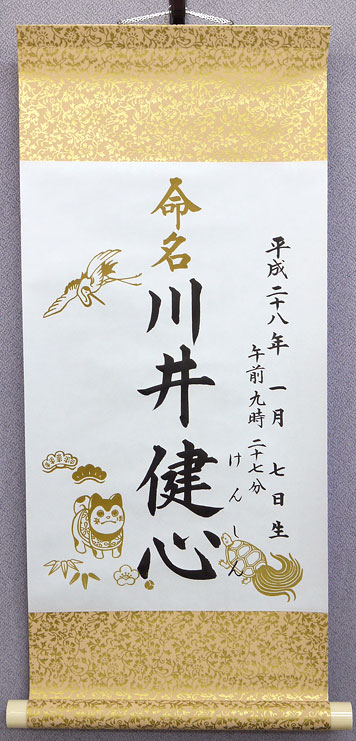 平成二十八年 一月 七日生
午前九時 二十七分
命名
川井健心
けんしん